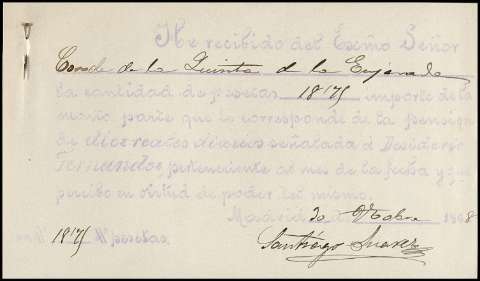 He recibido del Exmo Señor
Conde de la Quinta de la Enjarada
la cantidad de pesetas 18'75 importe de la
parte que le corresponde de la pension
de diez reales diarios señalada á Desiderio
Fernandez, perteneciente al mes de la fecha y que
percibo en virtud de poder del mismo.
Madrid 30 Octobre 1908
Son 18'75 pesetas.
Santiago Suarez